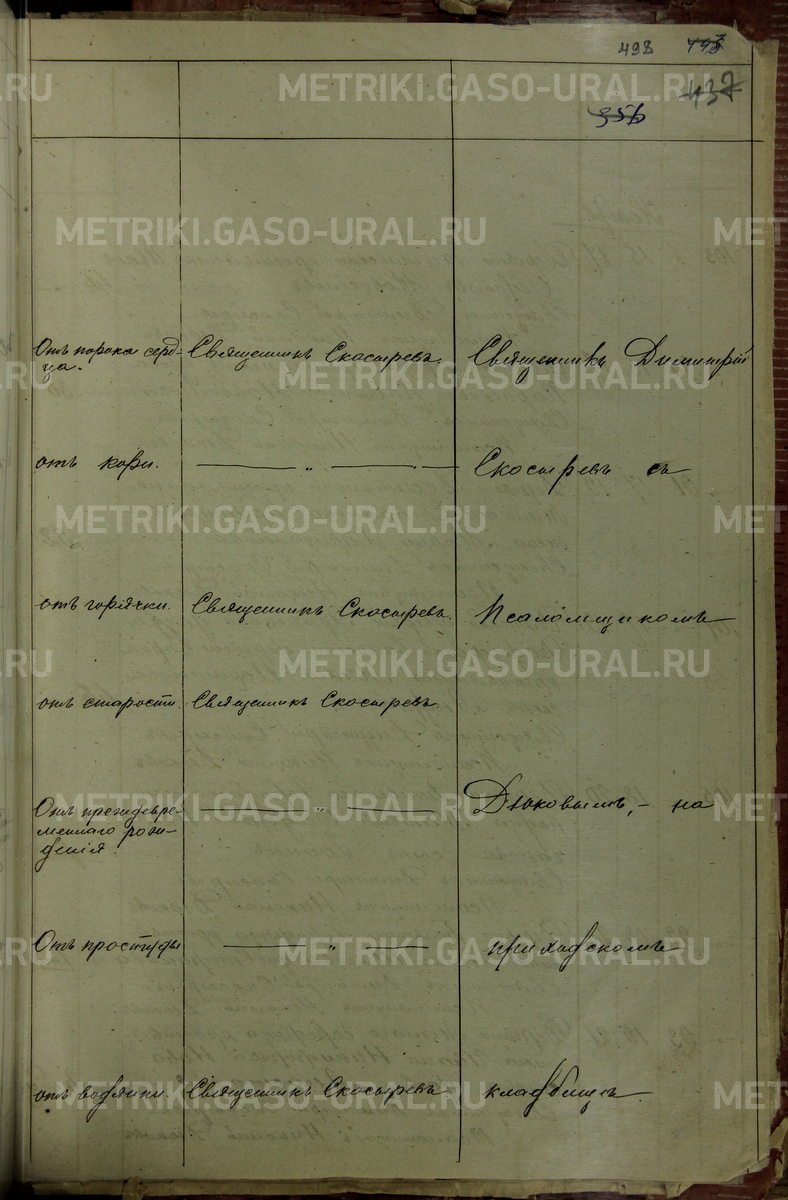 498 443
437
356
Отъ порока серд-
ца.
Священникъ Скосыревъ.
Священникъ Димитрій
отъ кори.
— „ —
Скосыревъ съ
отъ горячки.
Священникъ Скосыревъ.
Псаломщикомъ
отъ старости.
Священникъ Скосыревъ.
Отъ преждевре-
меннаго рож-
денія.
— „ —
Дьяковымъ, – на
Отъ простуды
— „ —
приходскомъ
отъ водянки.
Священникъ Скосыревъ
кладбищѣ.
METRIKI.GASO-URAL.RU